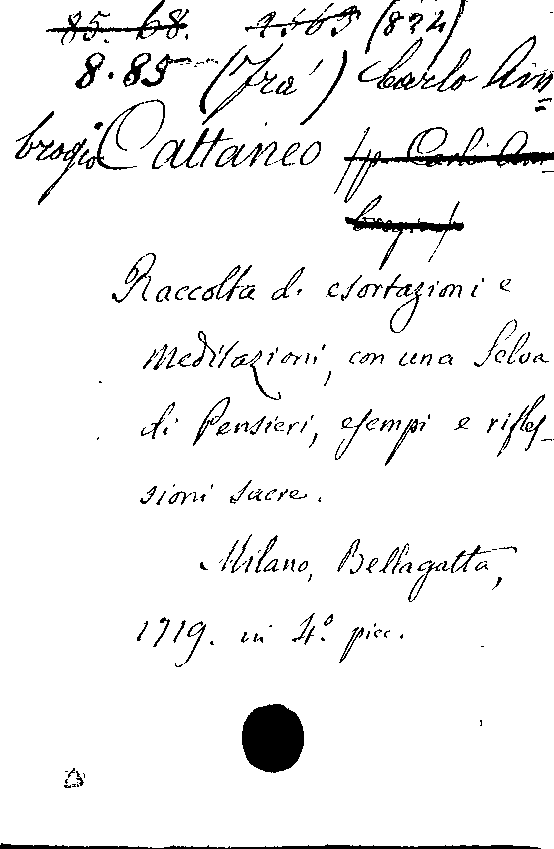 85. 68. 2563 (824)
8.85 (Fra') Carlo Am=
brogio Cattaneo (p. Carlo Am
brogio)
Raccolta di esortazioni e
Meditazioni, con una Selva
di Pensieri, esempi e rifles-
sioni sacre.
Milano, Bellagatta,
1719. in 4.º picc.